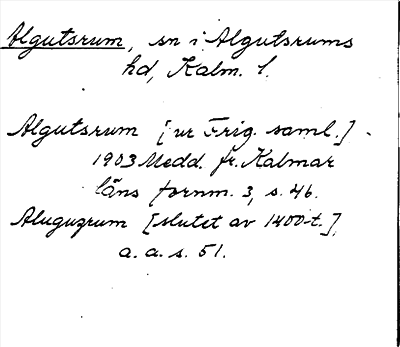 Algutsrum, sn i Algutsrums
hd, Kalm. l.
Algutsrum [ur Frig. saml.] -
1903 Medd. fr. Kalmar
läns fornm. 3, s. 46.
Aluguzrum [slutet av 1400-t.],
a. a. s. 51.